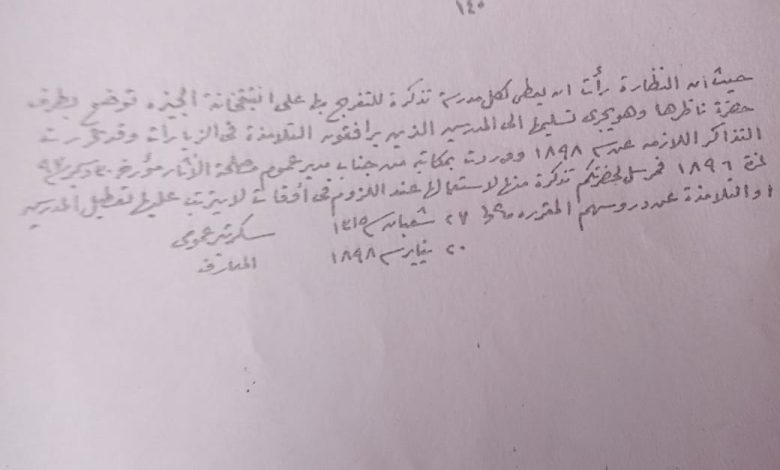 ١٤٠
حيث ان النظارة رأت ان يعطى لكل مدرسة تذكرة للتفرج بها على انتيقخانة الجيزه توضع بطرف
حضرة ناظرها وهو يجرى تسليمها الى المدرسين الذين يرافقون التلامذة فى الزيارات وقد تحررت
التذاكر اللازمه عن سنة ١٨٩٨ ووردت بمكاتبة من جناب مدير عموم مصلحة الآثار مؤرخه ٣٠ دسمبر ٩٧
نمرة ١٨٩٦ فمرسل لحضرتكم تذكرة منها لاستعمالها عند اللزوم فى أوقات لا يترتب عليها تعطيل المدرسين
او التلامذة عن دروسهم المقرره ٢٧ شعبان سنة ١٣١٥ سكرتير عمومى
٢٠ يناير سنة ١٨٩٨ المعارف